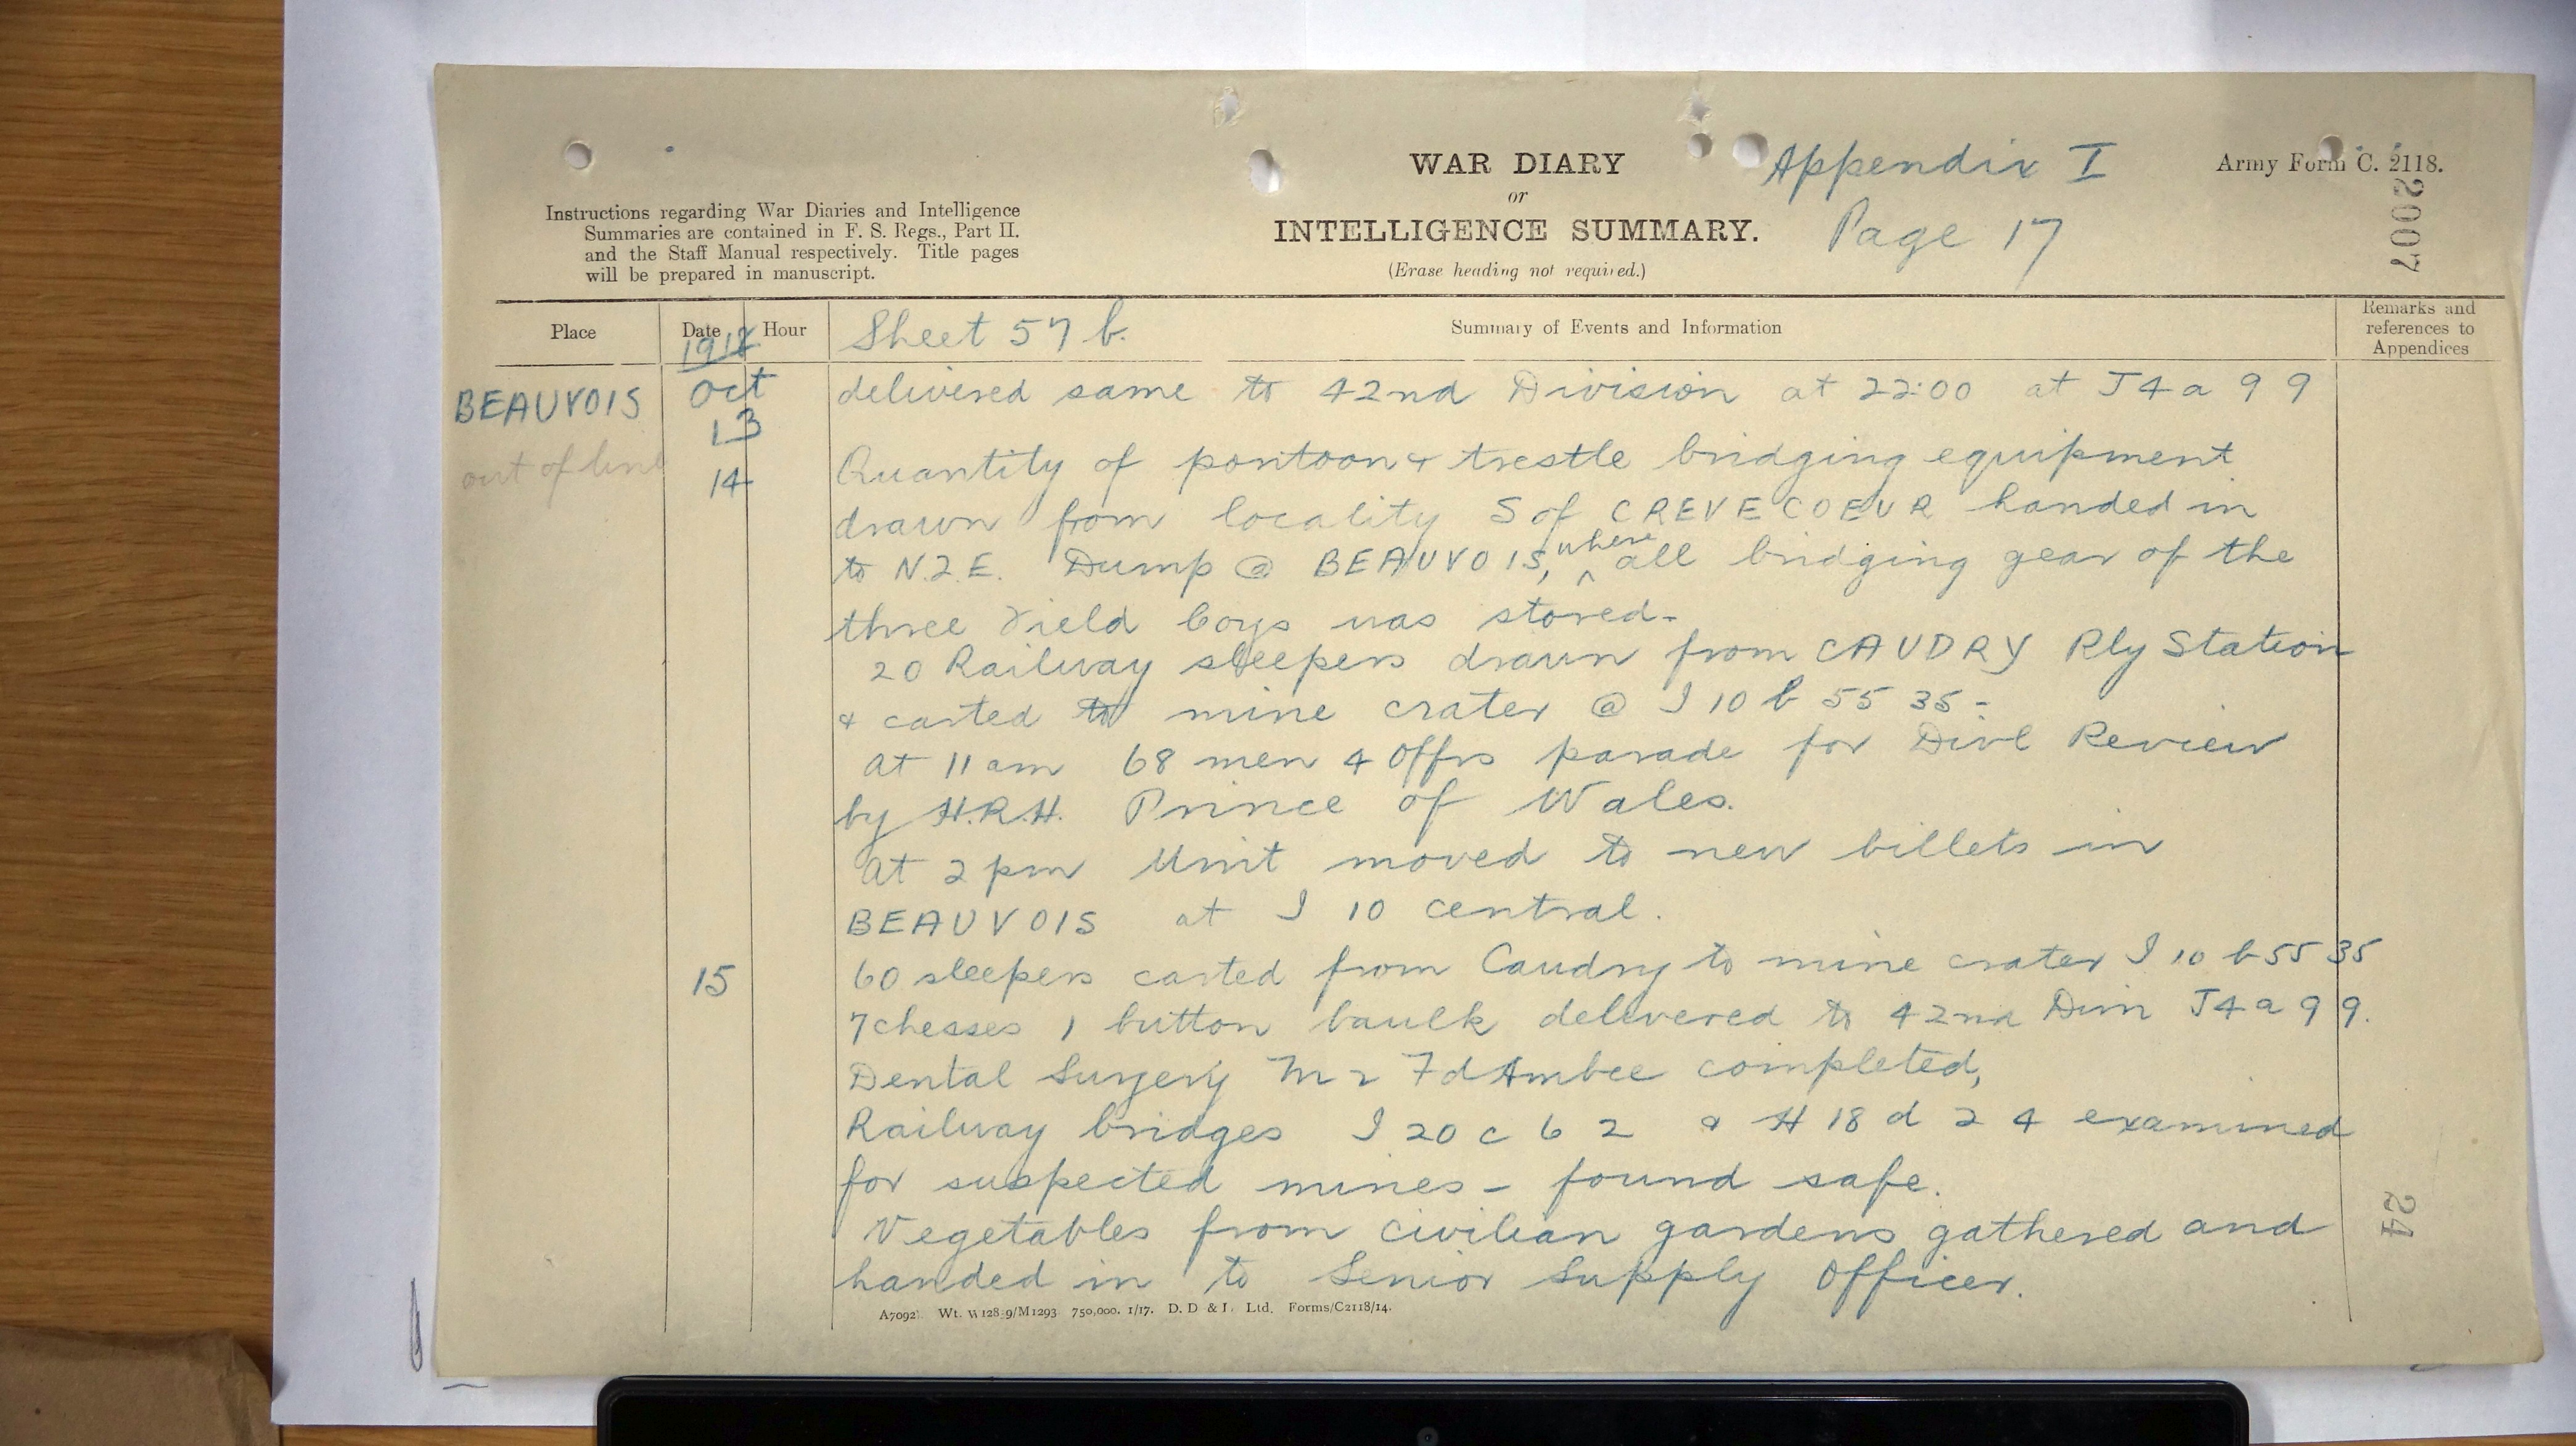 WAR DIARY
or
INTELLIGENCE SUMMARY.
(Erase heading not required.)
Appendix I
Page 17
Army Form C. 2118.
2007
Instructions regarding War Diaries and Intelligence
Summaries are contained in F. S. Regs., Part II.
and the Staff Manual respectively. Title pages
will be prepared in manuscript.
Place
Date
Hour
Summary of Events and Information
Remarks and
references to
Appendices
1918
Sheet 57 b.
BEAUVOIS
out of line
Oct
13
delivered same to 42nd Division at 22:00 at J 4 a 9 9
14
Quantity of pontoon & trestle bridging equipment
drawn from locality S of CREVECOEUR handed in
to N.Z.E. Dump @ BEAUVOIS, where all bridging gear of the
three Field Coys was stored-
20 Railway sleepers drawn from CAUDRY Rly Station
& carted to mine crater @ I 10 b 55 35 -
at 11 am 68 men 4 Offrs parade for Divl Review
by H.R.H. Prince of Wales.
At 2 pm Unit moved to new billets in
BEAUVOIS at I 10 central.
15
60 sleepers carted from Caudry to mine crater I 10 b 55 35
7 chesses 1 button baulk delivered to 42nd Divn J 4 a 9 9.
Dental Surgery Fd Ambce completed,
Railway bridges I 20 c 6 2 & H 18 d 2 4 examined
for suspected mines - found safe.
Vegetables from civilian gardens gathered and
handed in to Senior Supply Officer.
24
750,000. 1/17. Ltd. Forms/C2118/14.